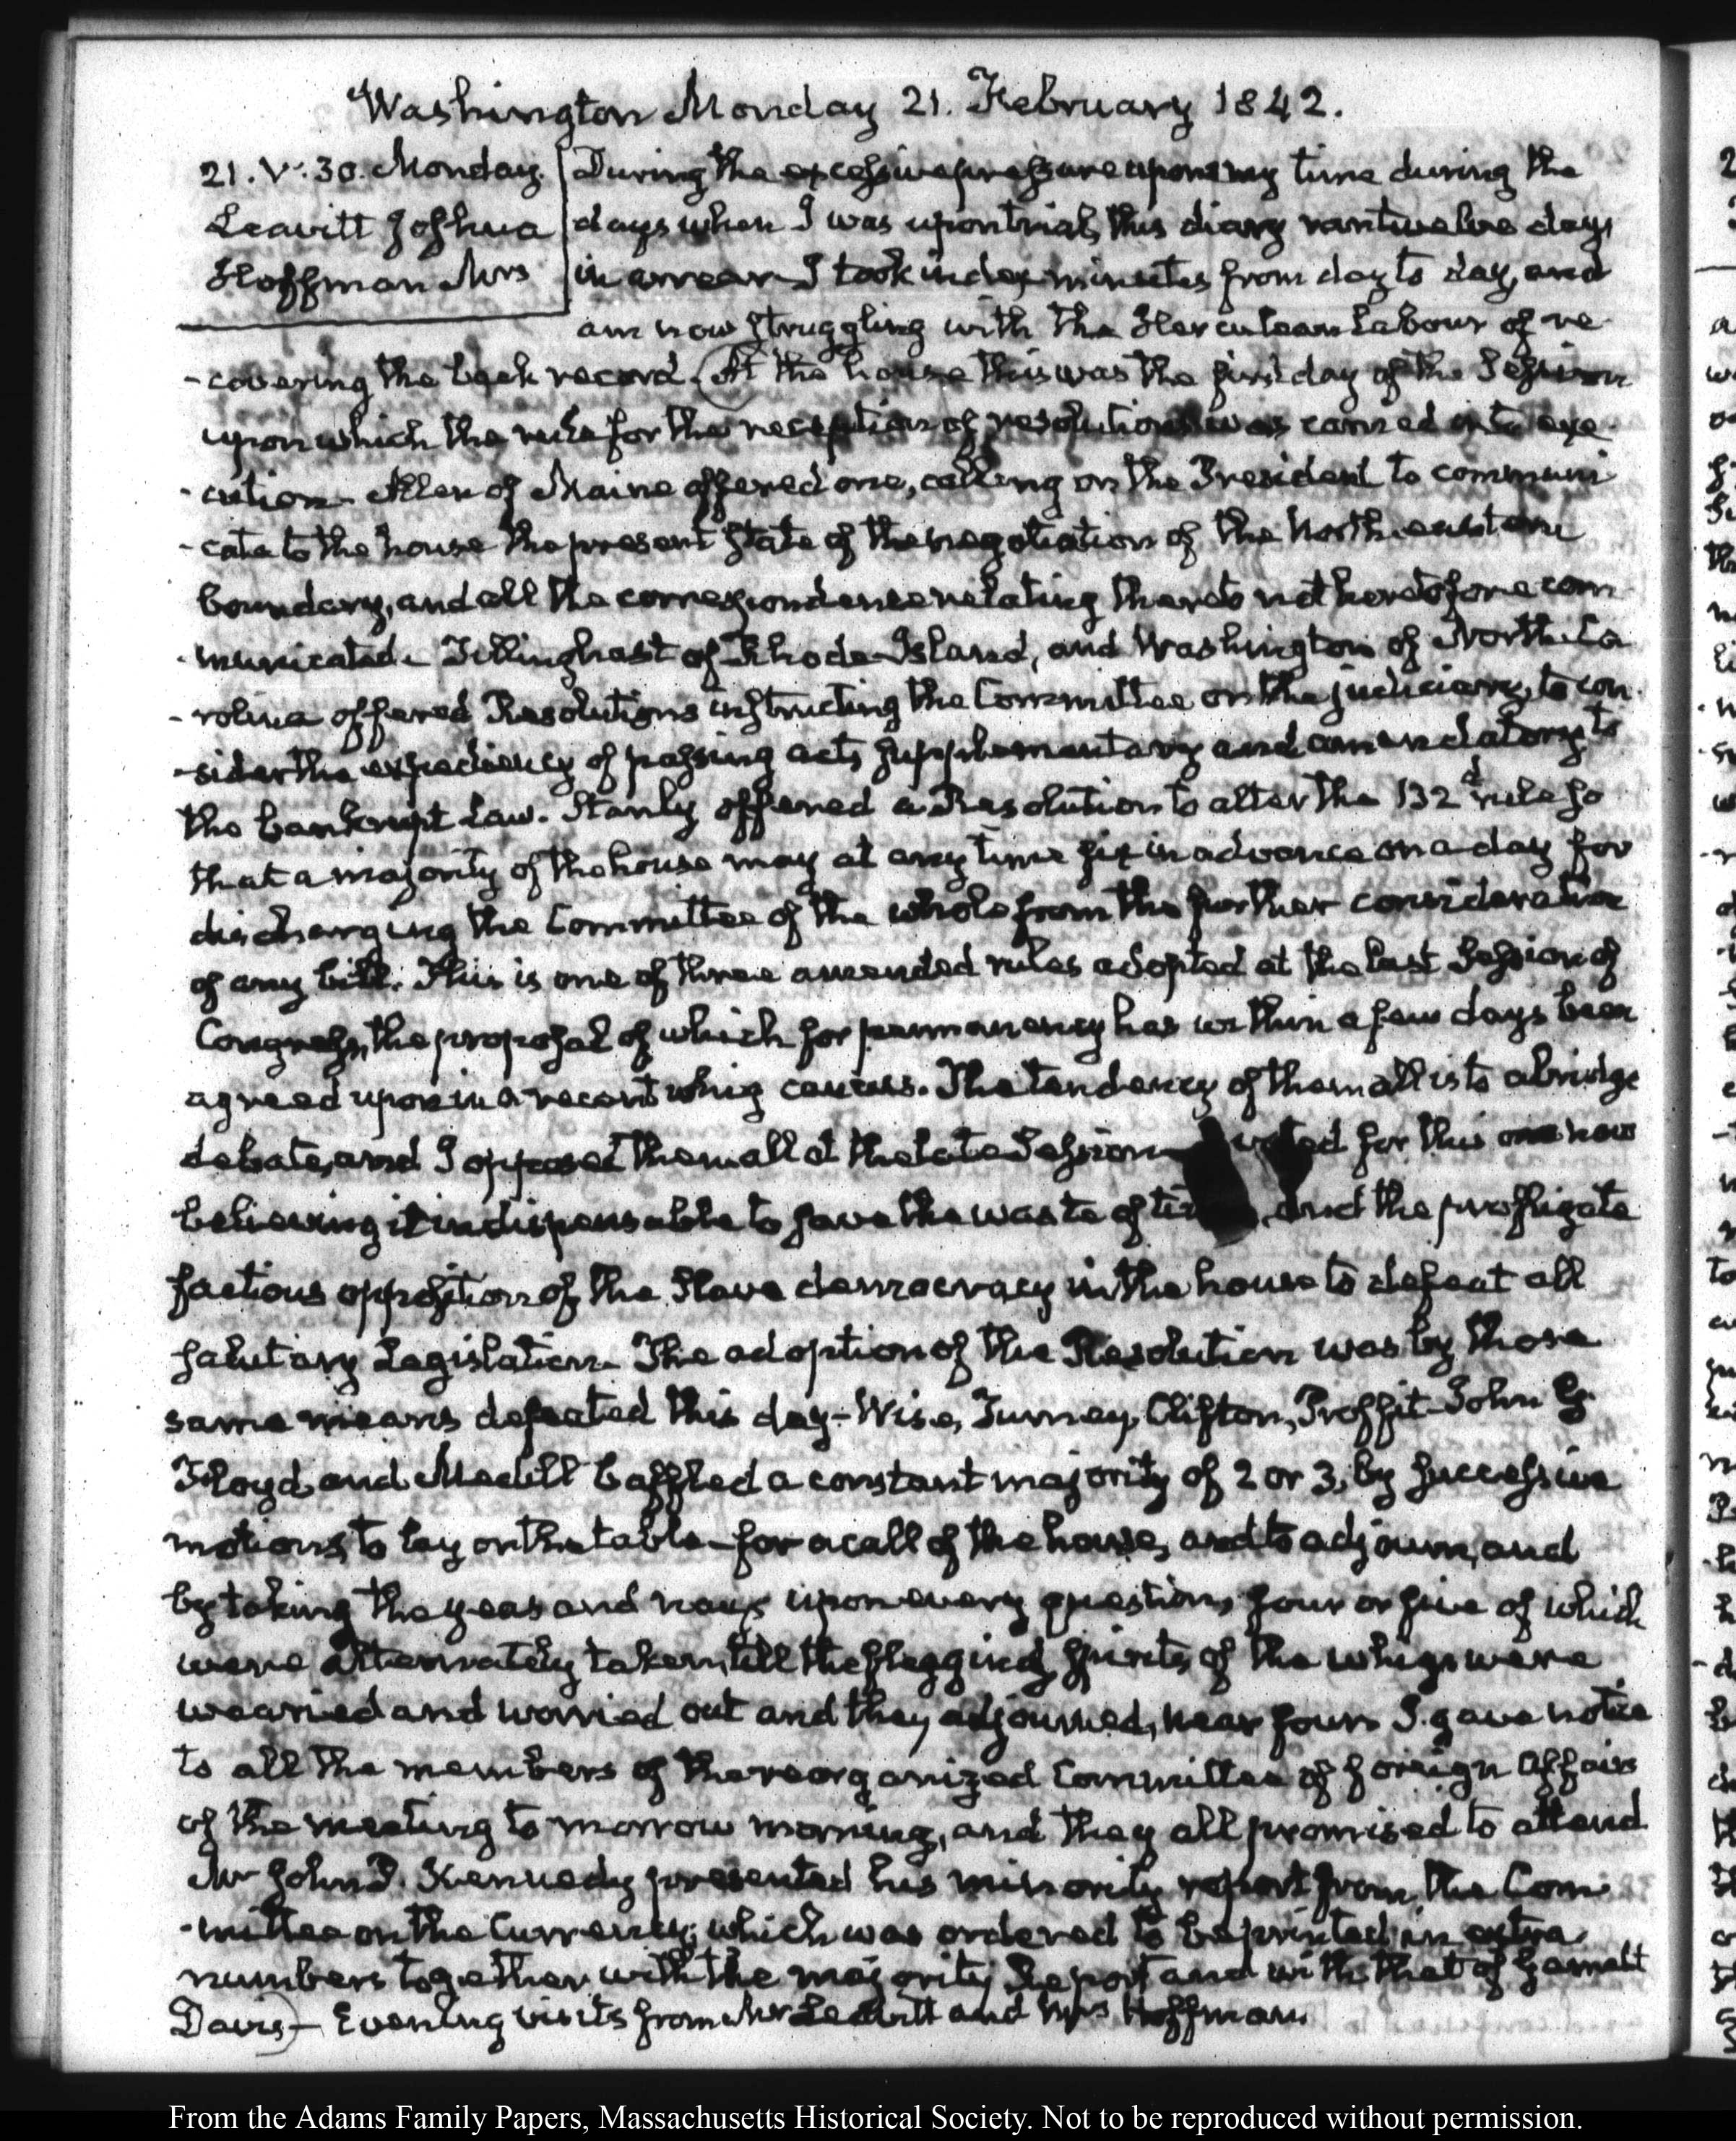 Washington Monday 21. February 1842.
21. V:30. Monday.
Leavitt Joshua
Hoffman Mrs
During the excessive pressure upon my time during the
days when I was upon trial, this diary ran twelve days
in arrear. I took index minutes from day to day, and
am now struggling with the Herculean labour of re-
-covering the back record. (At the house this was the first day of the Session
upon which the rule for the reception of resolutions was carried into exe-
-cution. Allen of Maine offered one, calling on the President to communi-
-cate to the house the present state of the negotiation of the North-eastern
boundary, and all the correspondence relating thereto not heretofore com-
-municated. Tillinghast of Rhode-Island, and Washington of North-Ca-
-rolina offered Resolutions instructing the Committee on the judiciary, to con-
-sider the expediency of passing acts supplementary and amendatory to
the bankrupt Law. Stanly offered a Resolution to alter the 132d rule so
that a majority of the house may at any time fix in advance on a day for
discharging the Committee of the whole from the further consideration
of any bill. This is one of three amended rules adopted at the last Session of
Congress, the proposal of which for permanency has within a few days been
agreed upon in a recent whig caucus. The tendency of them all is to abridge
debate, and I opposed them all at the late Session voted for this one now
believing it indispensable to save the waste of and the profligate
factious opposition of the slave democracy in the house to defeat all
salutary Legislation. The adoption of the Resolution was by those
same means defeated this day- Wise, Turney, Clifton, Proffit- John G.
Floyd and Medill baffled a constant majority of 2 or 3, by successive
motions, to lay on the table- for a call of the house, and to adjourn, and
by taking the yeas and nays upon every question, four or five of which
were alternately taken, till the flagging spirits of the whigs were
wearied and worried out and they adjourned, near four. I gave notice
to all the members of the reorganized Committee of foreign Affairs
of the meeting to morrow morning, and they all promised to attend
Mr John P. Kennedy presented his minority report from the Com-
-mittee on the Currency, which was ordered to be printed in extra
numbers together with the majority Report and with that of Garrett
Davis)- Evening visits from Mr Leavitt and Mrs Hoffman.
From the Adams Family Papers, Massachusetts Historical Society. Not to be reproduced without permission.